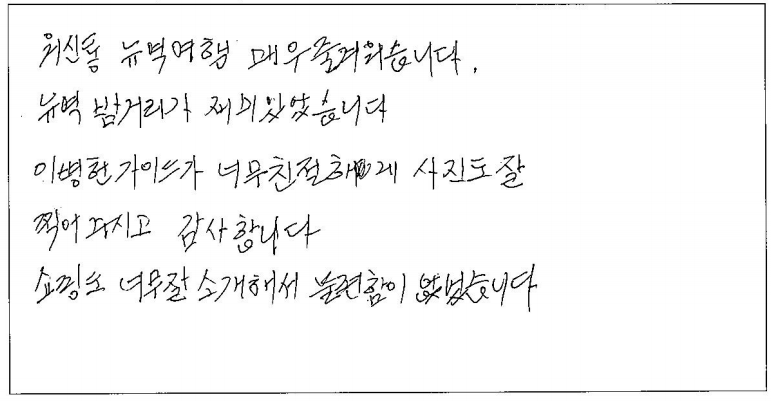 워신톤 뉴욕여행 매우즐거워습니다.
뉴욕 밤거리가 재미있었습니다
이병헌가이드가 너무친절하게 사진도잘
찍어주시고 감사합니다
쇼핑도 너무잘소개해서 불편함이 없었습니다